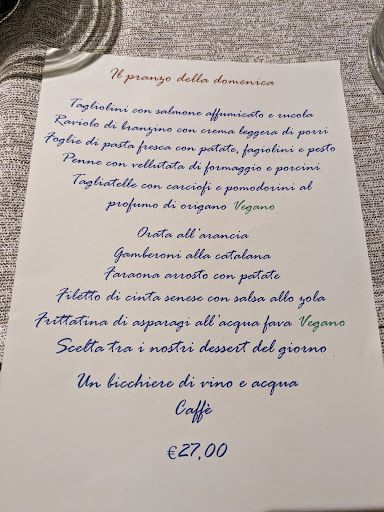 Il pranzo della domenica
Tagliolini con salmone affumicato e rucola
Raviolo di branzino con crema leggera di porri
Foglie di pasta fresca con patate, fagiolini e pesto
Penne con vellutata di formaggio e porcini
Tagliatelle con carciofi e pomodorini al
profumo di origano Vegano
Orata all'arancia
Gamberoni alla catalana
Faraona arrosto con patate
Filetto di cinta senese con salsa allo zola
Frittatina di asparagi all'acqua fava Vegano
Scelta tra i nostri dessert del giorno
Un bicchiere di vino e acqua
Caffè
€27,00